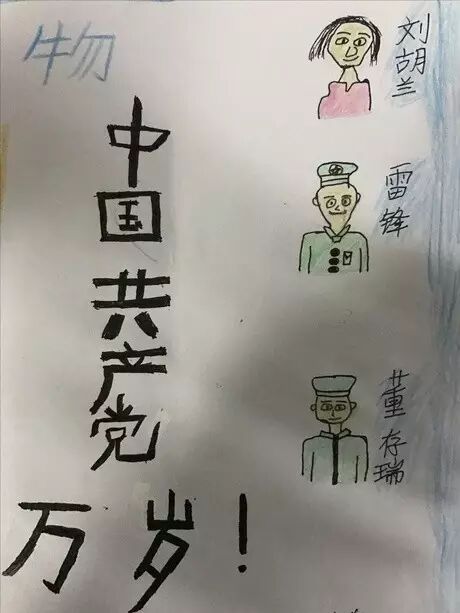 物
中国共产党
万岁！
刘胡兰
雷锋
董存瑞